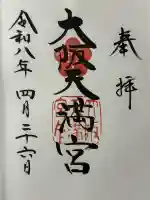 奉拝
大阪天満宮
令和八年 四月二十六日